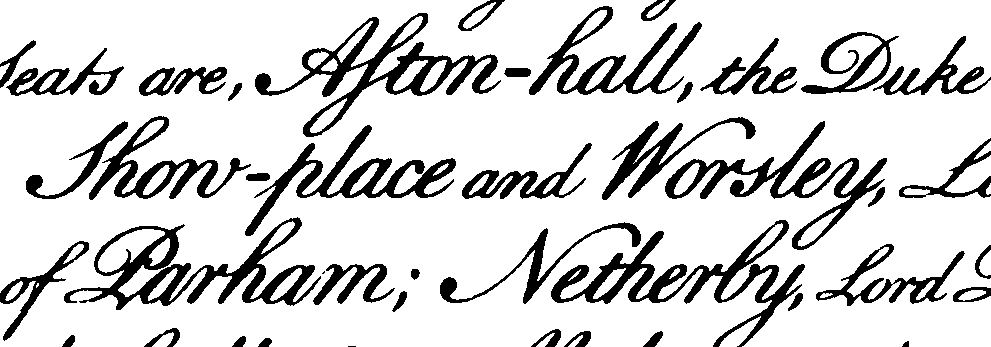 seats are, Aſton-hall, the Duke
Show-place and Worsley,
of Parham; Netherby, Lord